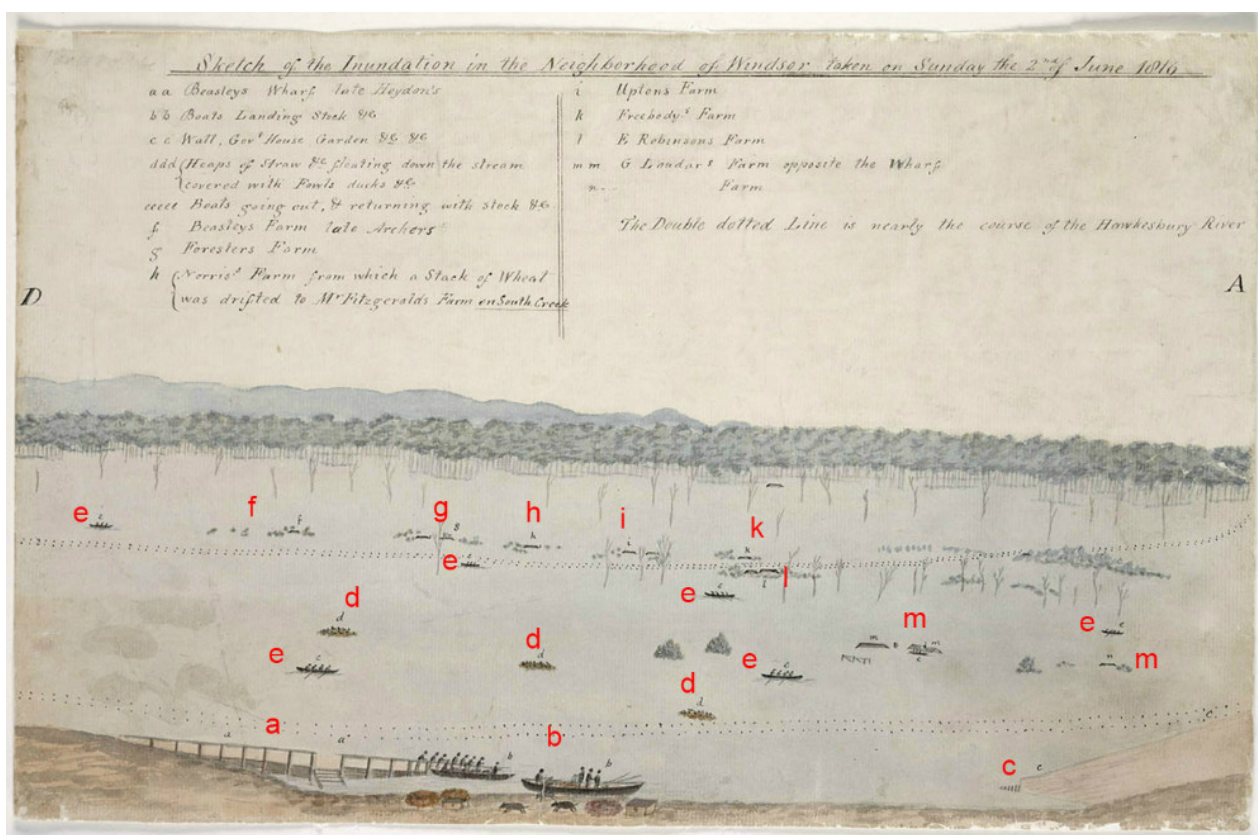 Sketch of the Inundation in the Neighborhood of Windsor taken on Sunday the 2nd of June 1816
a a Beasleys Wharf late Heydon's
b b Boats Landing Stock &c
c c Wall, Govt House Garden &c &c
ddd { Heaps of Straw &c floating down the stream
covered with Fowls ducks &c
eeeee Boats going out, & returning with stock &c
f Beasleys Farm late Archers
g Foresters Farm
h { Norris's Farm from which a Stack of Wheat
was drifted to Mr Fitzgeralds Farm on South Creek
i Uptons Farm
k Freebody's Farm
l E Robinsons Farm
m m G Loudar's Farm opposite the Wharf
n Farm
The Double dotted Line is nearly the course of the Hawkesbury River
D
A
e
f
g
h
i
k
e
l
d
e
m
e
e
d
e
m
d
a
b
c